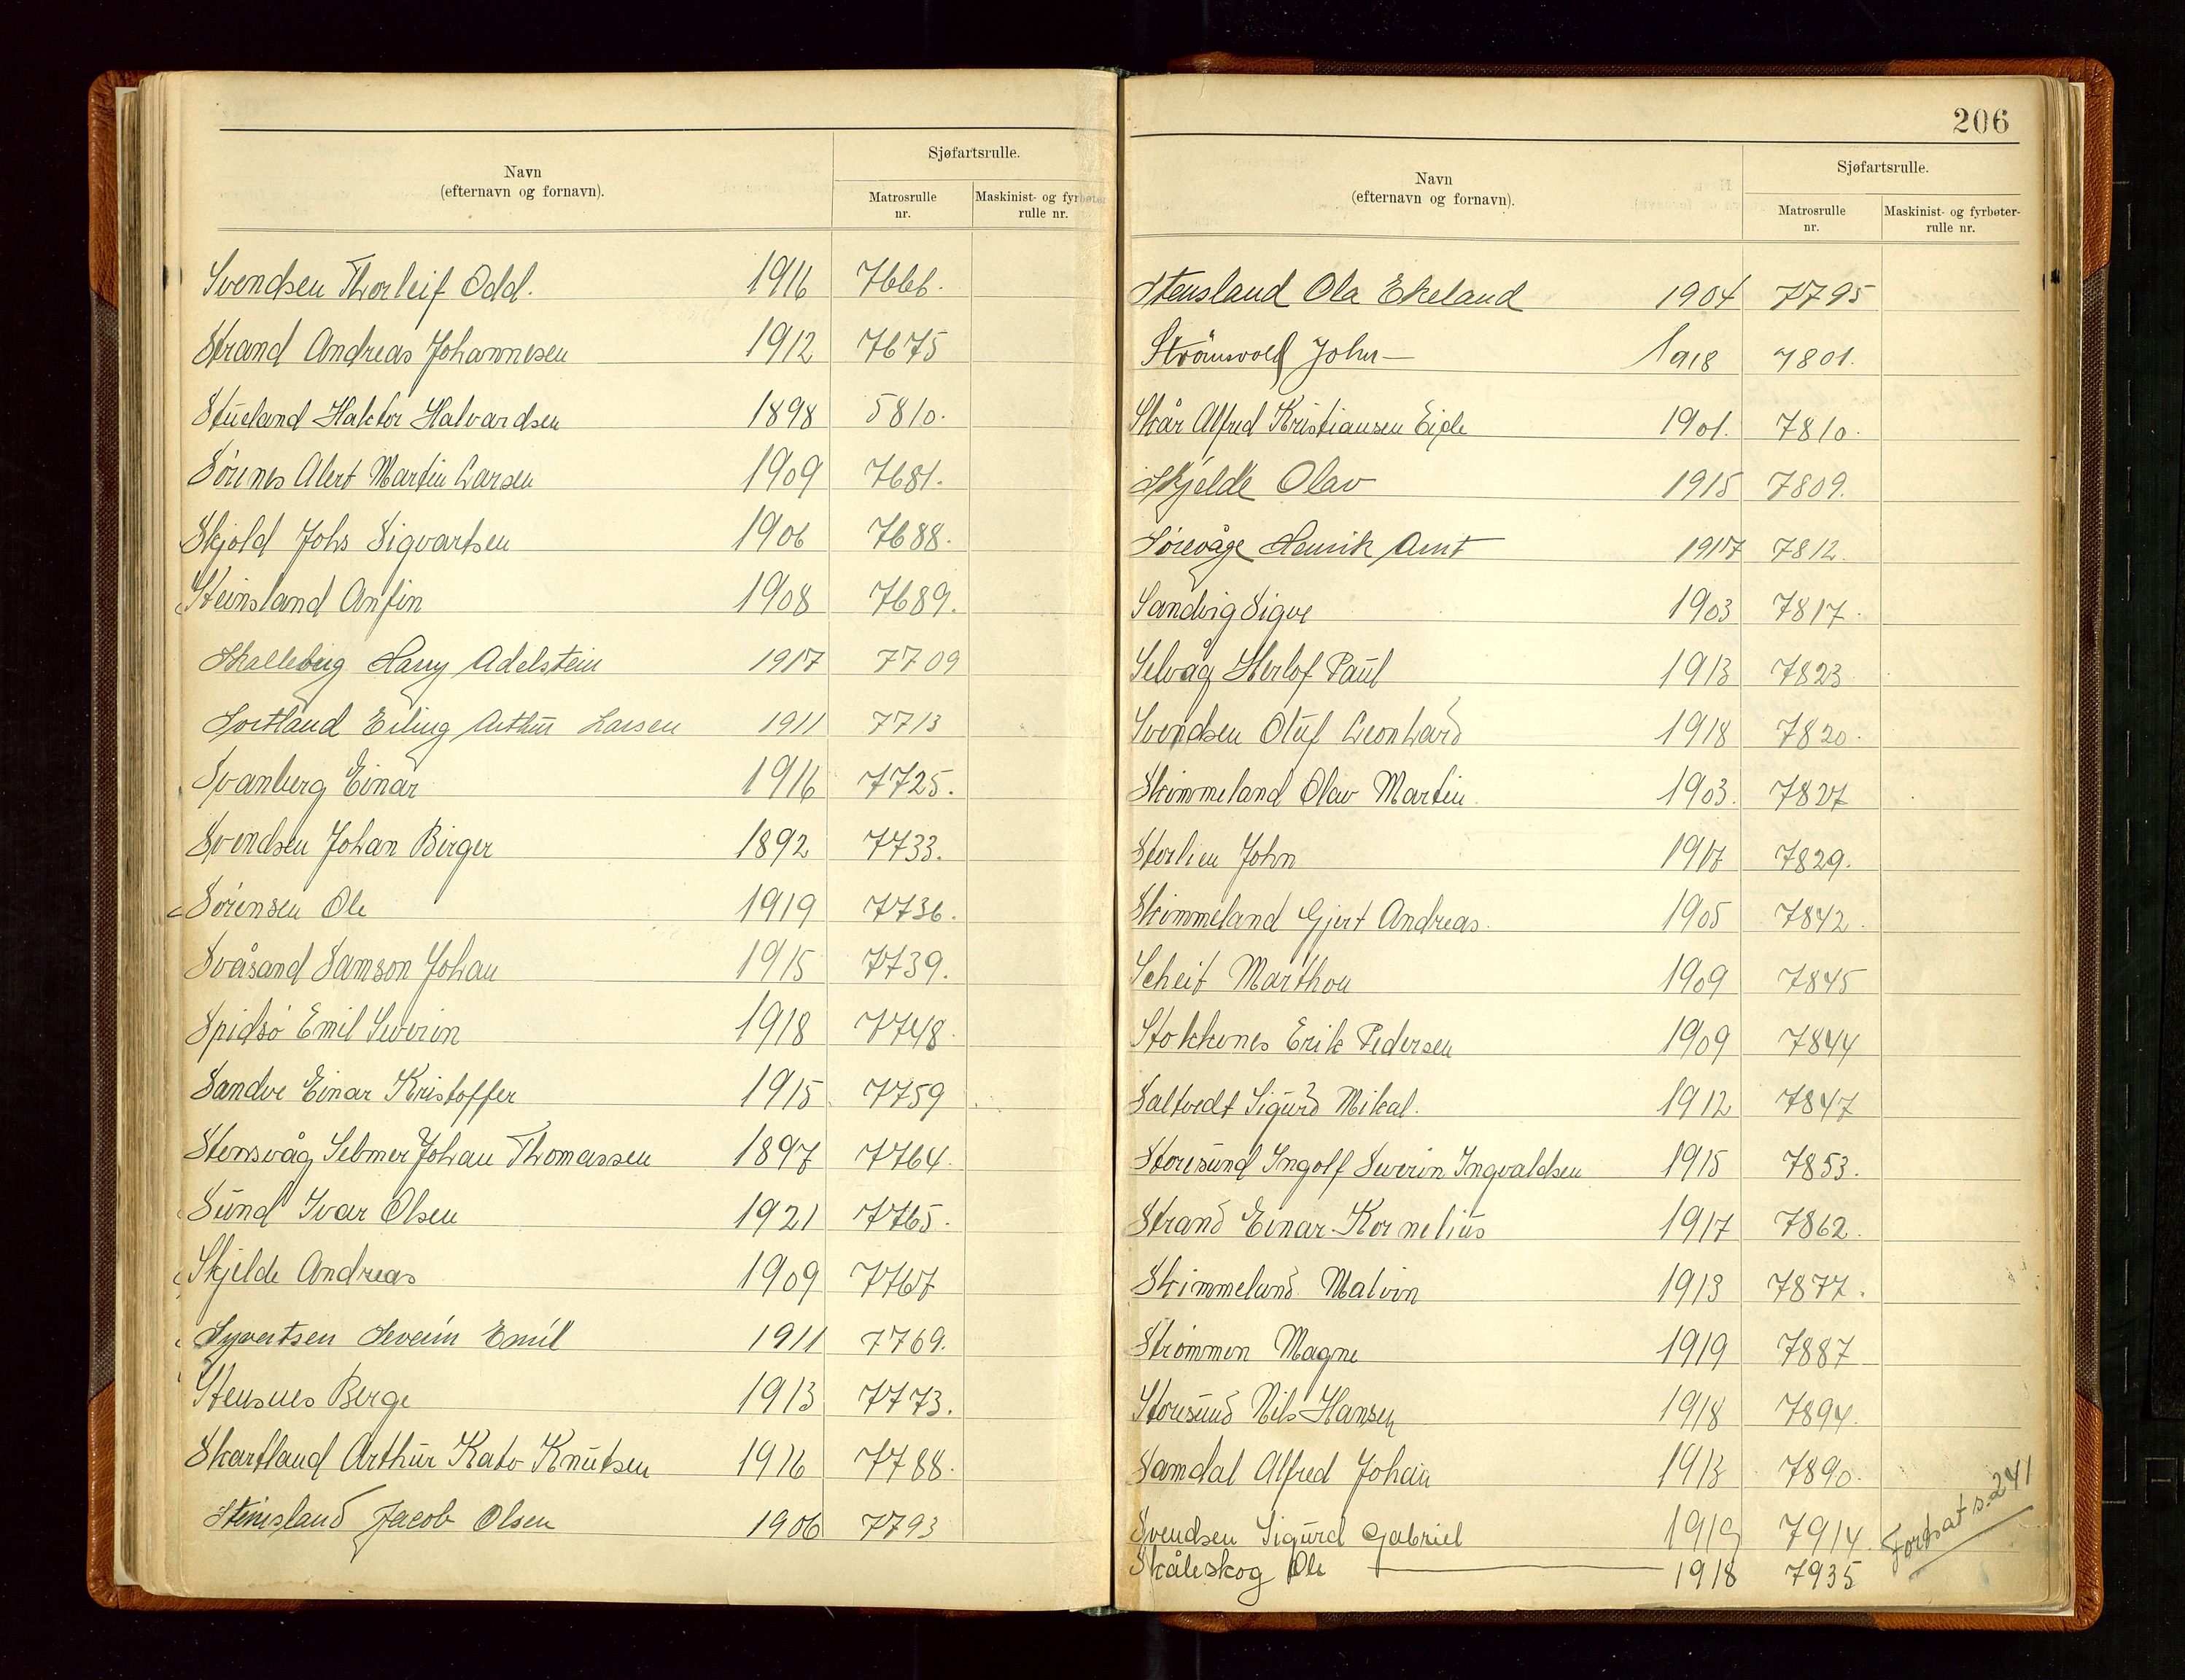 Navn
(efternavn og fornavn).
Sjøfartsrulle.
Matrosrulle
nr.
Maskinist- og fyrbøter
rulle nr.
Svendsen Thorleif Odd. 1916 7666.
Strand Andreas Johannesen 1912 7675
Stueland Haktor Halvardsen 1898 5810.
Sørenes Alert Martin Larsen 1909 7681.
Skjold Johs Sigvartsen 1906 7688.
Steinsland Anfin 1908 7689.
Skalleberg Harry Adelstein 1917 7709
Sortland Erling Arthur Larsen 1911 7713
Svanberg Einar 1916 7725.
Svendsen Johan Birger 1892 7733.
Sørensen Ole 1919 7736.
Svåsand Samson Johan 1915 7739.
Spidsø Emil Severin 1918 7748.
Sandve Einar Kristoffer 1915 7759
Stensvåg Selmer Johan Thomassen 1897 7764.
Sund Ivar Olsen 1921 7765.
Skjelde Andreas 1909 7767
Syvertsen Severin Emil 1911 7769.
Stensnes Berge 1913 7773.
Skartland Arthur Kato Knutsen 1916 7788.
Steinsland Jacob Olsen 1906 7793
206
Navn
(efternavn og fornavn).
Sjøfartsrulle.
Matrosrulle
nr.
Maskinist- og fyrbøter-
rulle nr.
Stensland Ola Ekeland 1904 7795
Strömsvold John — 1918 7801.
Skår Alfred Kristiansen Eide 1901. 7810.
Skjelde Olav 1915 7809.
Sørevåge Henrik Arnt 1917 7812.
Sandvig Sigve 1903 7817.
Selvåg Herlof Paul 1913 7823
Svendsen Oluf Leonhard 1918 7820.
Skimmeland Olav Martin. 1903. 7827
Storlien John 1917 7829.
Skimmeland Gjert Andreas. 1905 7842.
Scheit Marthon 1909 7845
Stokkenes Erik Pedersen 1909 7844
Saltvedt Sigurd Mikal. 1912 7847
Storesund Ingolf Severin Ingvaldsen 1915 7853.
Strand Einar Kornelius 1917 7862.
Skimmeland Malvin 1913 7877.
Strømmen Magne 1919 7887
Storesund Nils Hansen 1918 7894.
Samdal Alfred Johan 1913 7890.
Svendsen Sigurd Gabriel 1919 7914.
Skåleskog Ole — 1918 7935
Fortsat s. 241